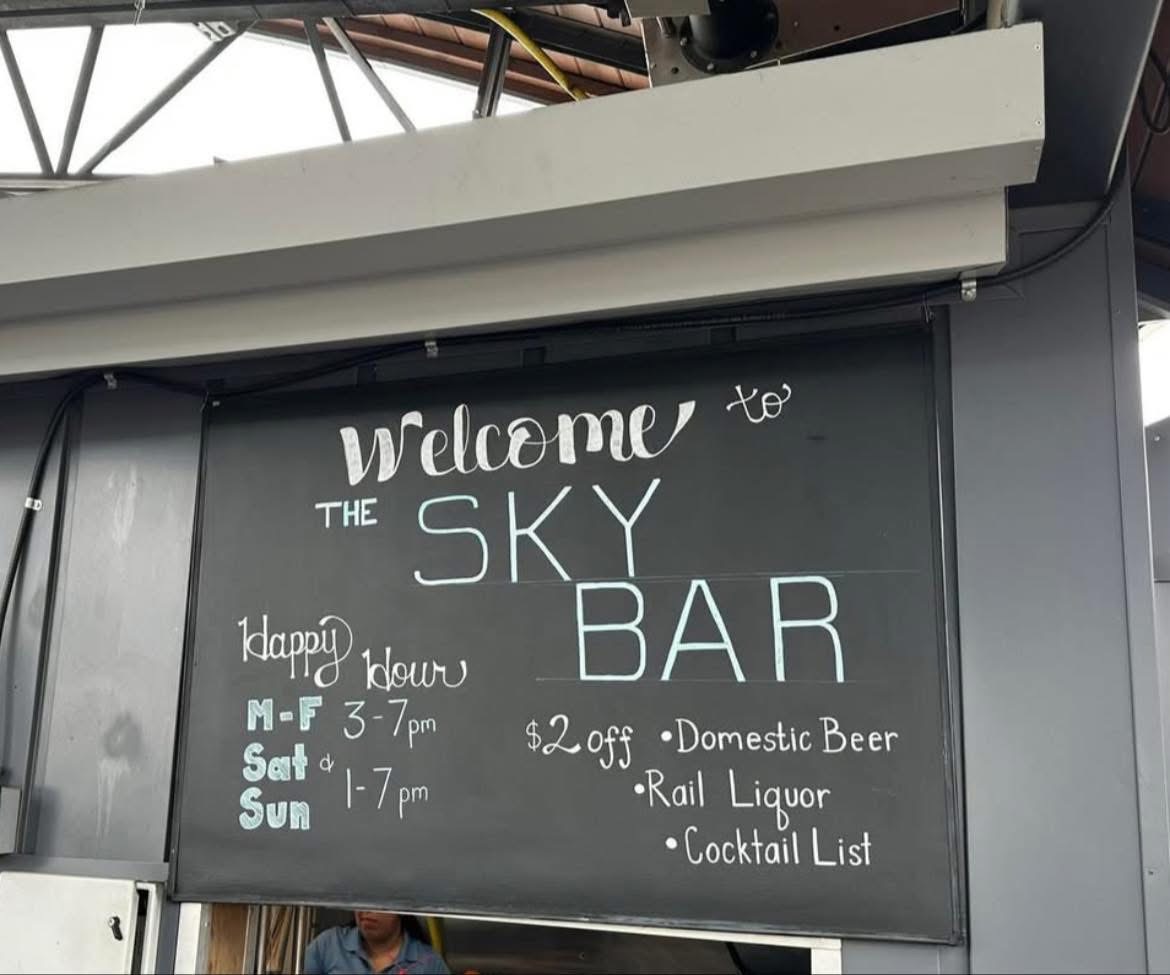 Welcome to
THE SKY
BAR
Happy
Hour
M-F 3-7pm
Sat &
Sun 1-7pm
$2 off •Domestic Beer
•Rail Liquor
•Cocktail List